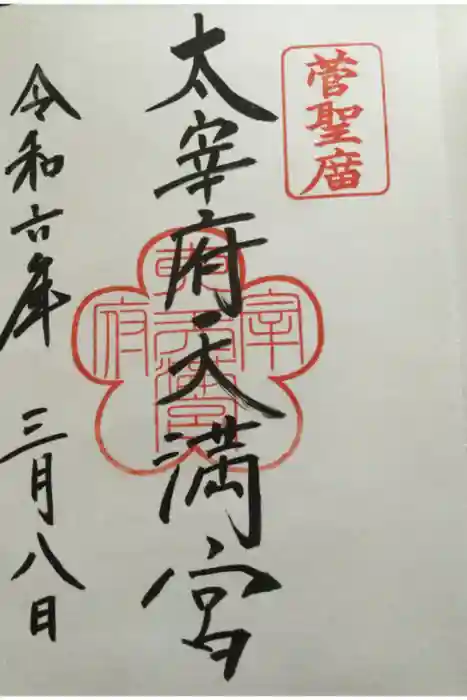 菅聖廟
太宰府天満宮
令和六年 三月八日